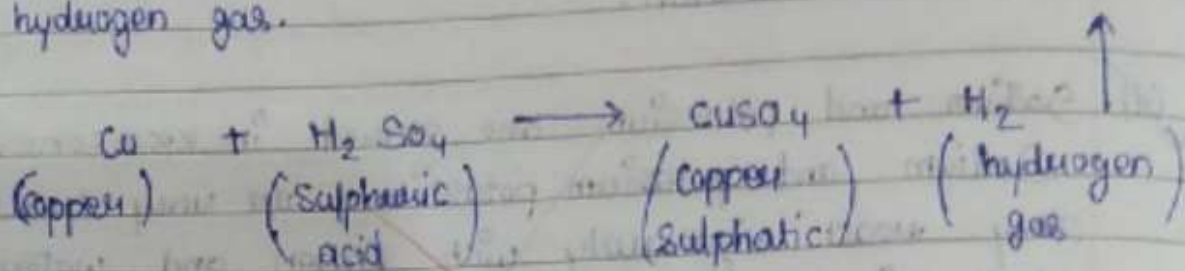 hydrogen gas.
Cu + H₂ SO₄ ⟶ CuSO₄ + H₂ ↑
(Copper) (Sulphuric acid) (Copper Sulphatic) (hydrogen gas)